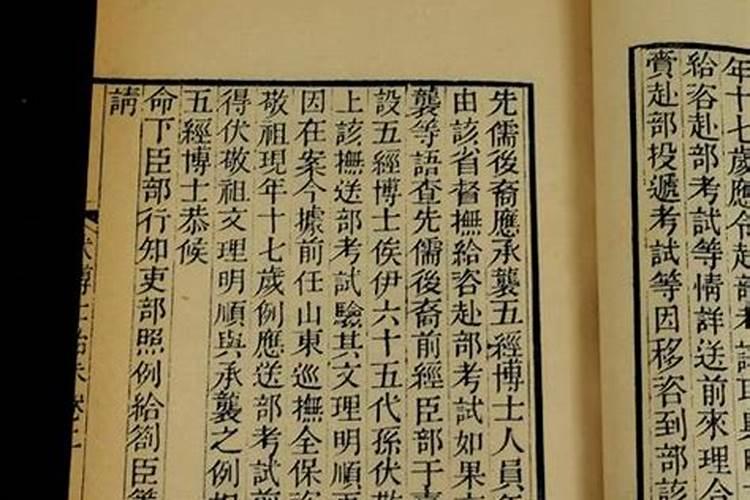 年十七歲應令赴部考試
給咨赴部考試等情詳送前來理合
賫赴部投遞考試等因移咨到部該
先儒後裔應承襲五經博士人員年
由該省督撫給咨赴部考試如果文
襲等語查先儒後裔前經臣部于
設五經博士俟伊六十五代孫伏敬
上該撫送部考試驗其文理明順再
因在案今據前任山東巡撫全保咨
敬祖現年十七歲例應送部考試前
得伏敬祖文理明順與承襲之例相
五經博士恭候
命下臣部行知吏部照例給劄臣等
請